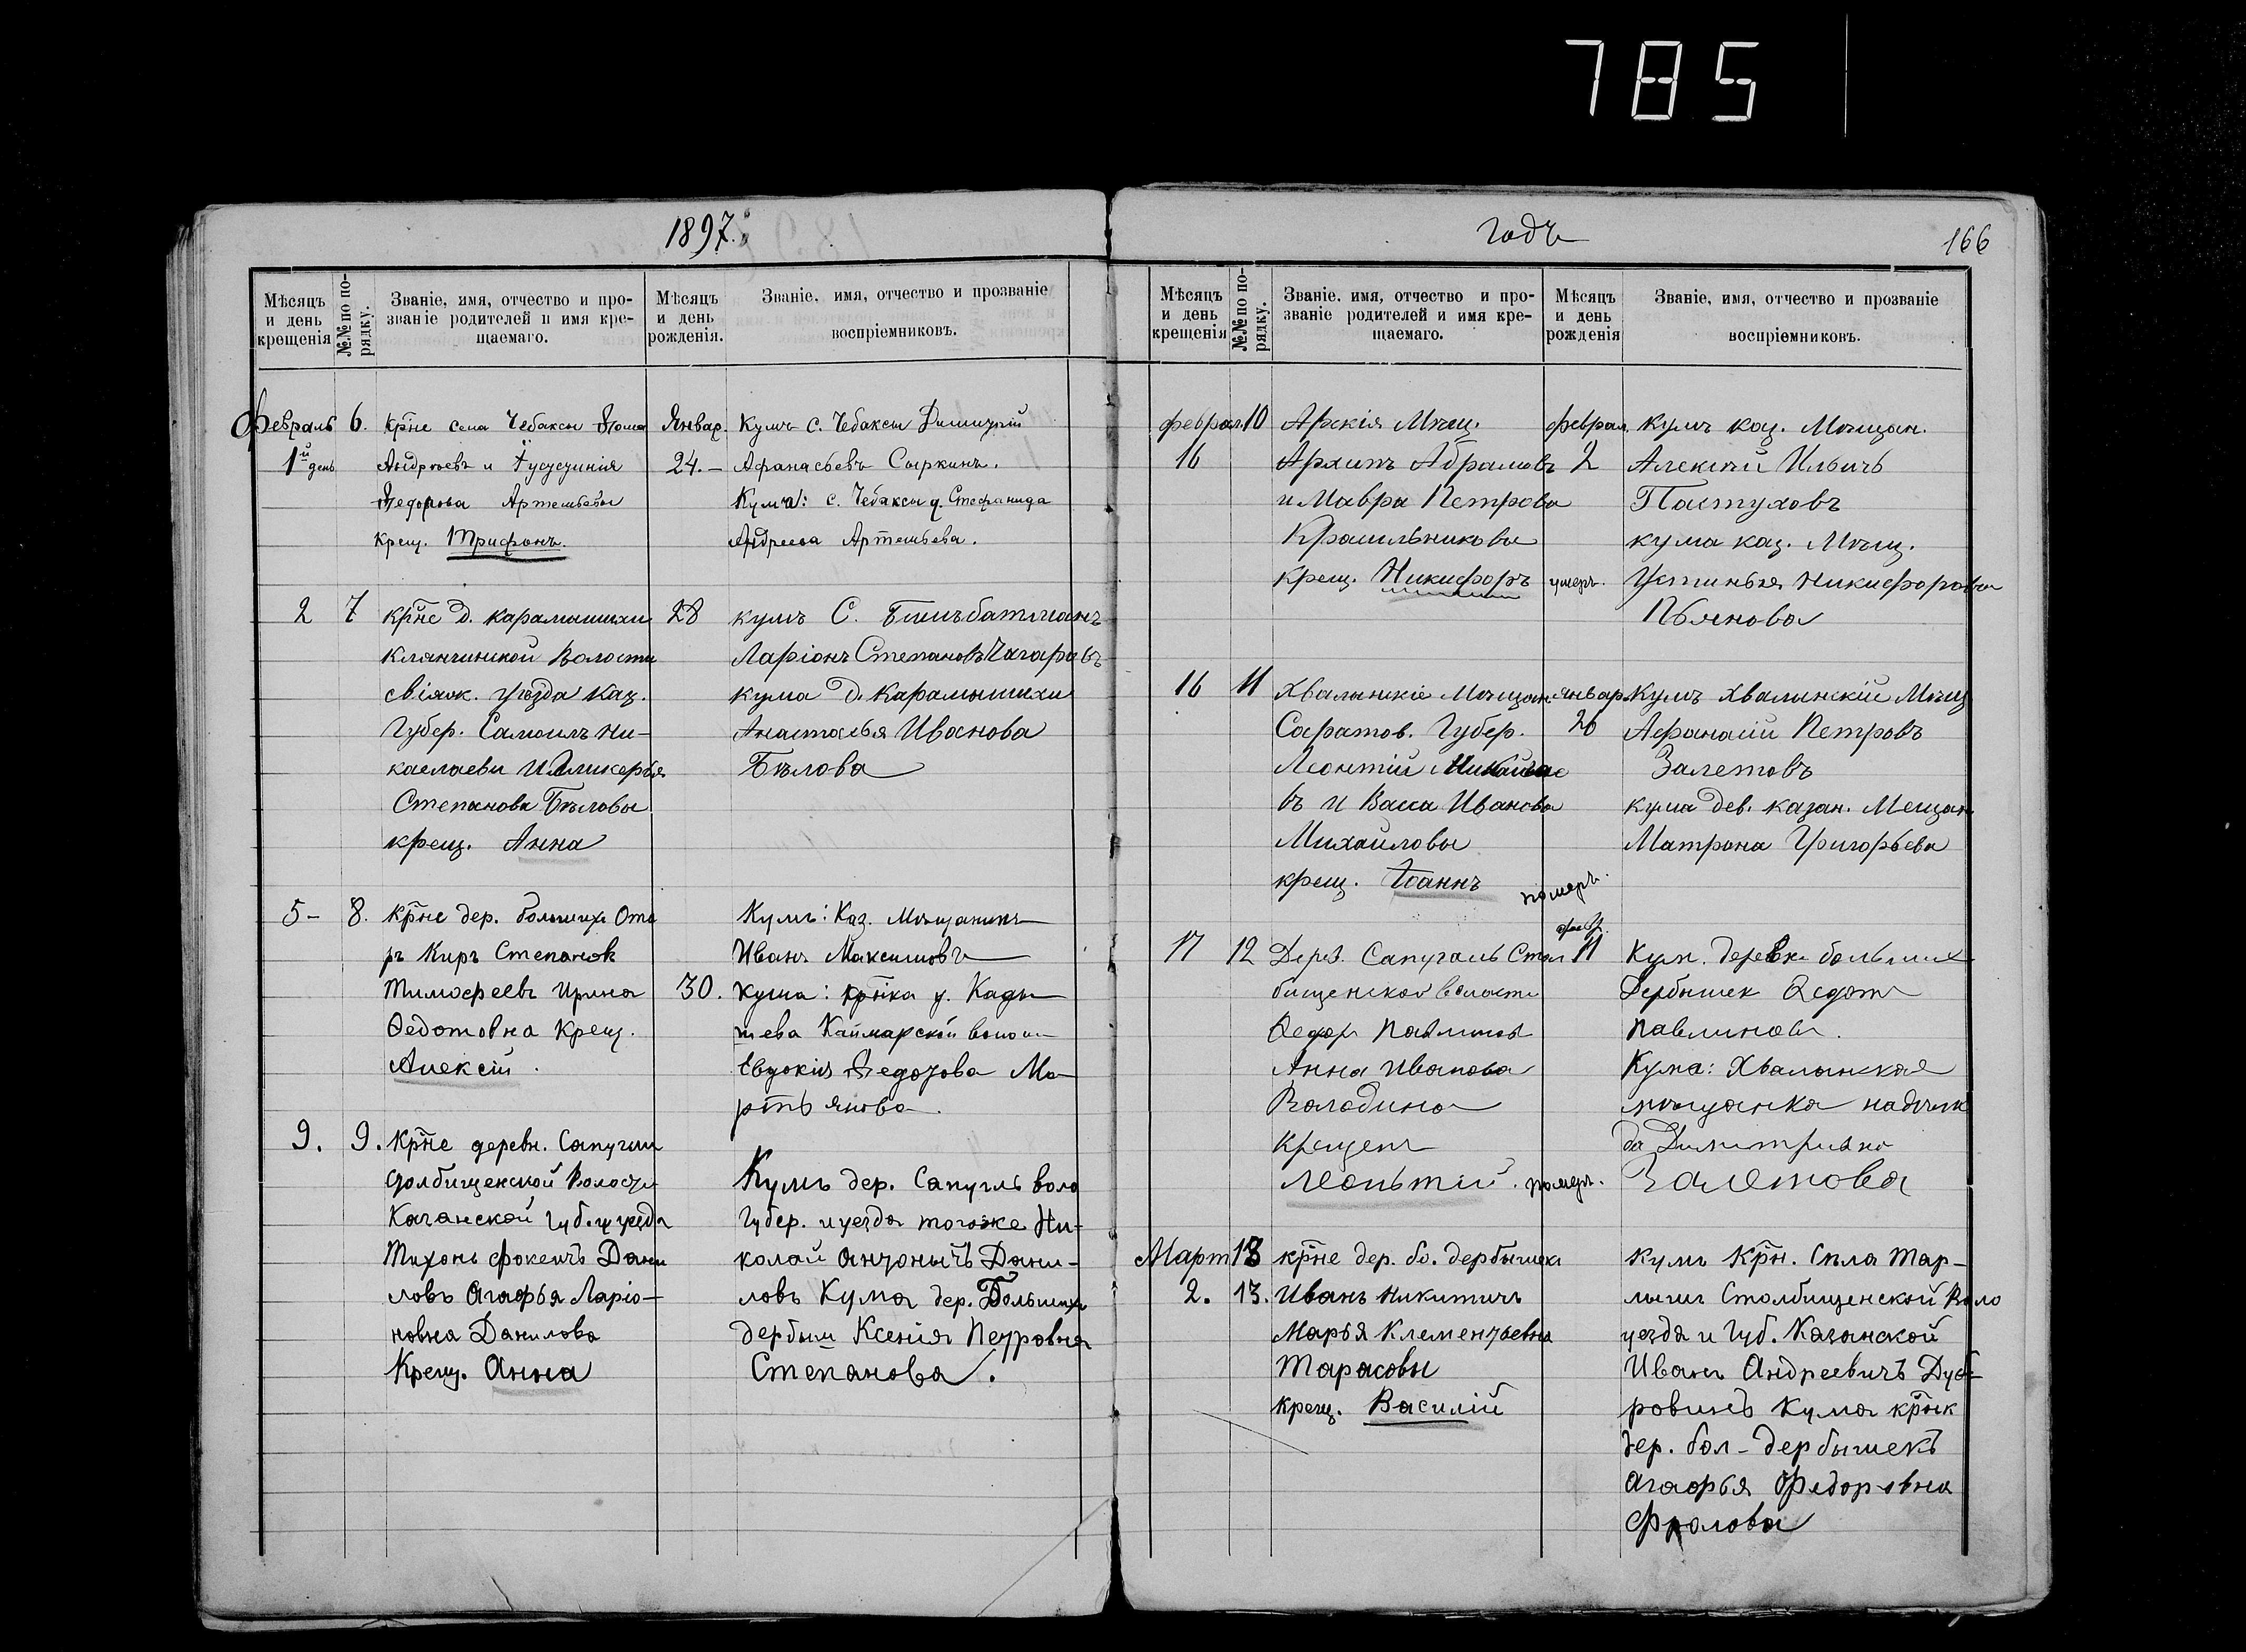 785
1897.
Мѣсяцъ и день крещенія
№№ по порядку.
Званіе, имя, отчество и прозваніе родителей и имя крещаемаго.
Мѣсяцъ и день рожденія.
Званіе, имя, отчество и прозваніе воспріемниковъ.
Февраль 1й день
6.
Крне села Чебаксы Фома
Андреевъ и
Федорова Артемьевы
крещ. Трифонъ.
Январ.
24.–
Кумъ с. Чебаксы Димитрій
Афанасьевъ Сыркинъ.
Кума: с. Чебаксы д. Стефанида
Андреева Артемьева.
2
7
крне д. карамышихи
Клянчинской Волости
свіяж. уѣзда Каз.
Губер. Самоилъ Ни-
каелаевъ И Гликерья
Степанова Бѣловы
крещ. Анна
28
кумъ С.
Ларіонъ Степановъ
кума д. Карамышихи
Анастасья Иванова
Бѣлова
5–
8.
крне дер. большихъ Ота
ръ Киръ Степанов
Тимофеевъ Ирина
Ѳедотовна крещ.
Алексій.
30.
Кумъ: Каз. Мѣщанинъ
Иванъ Максимовъ
Кума: крнка д. Кады
шева Каймарской волос
Евдокія Федорова Ма
ртьянова.
9.
9.
Крне деревн. Сапугли
Столбищенской Волости
Казанской губ. и уезда
Тихонъ Фокеичъ Дани
ловъ Агафья Ларіо-
новна Данилова
Крещ. Анна
Кумъ дер. Сапугль воло
Губер. и уезда тогоже Ни-
колай Антонычъ Дани-
ловъ Кума дер. Большихъ
дербыш Ксенія Петровна
Степанова.
годъ
166
Мѣсяцъ и день крещенія
№№ по порядку.
Званіе, имя, отчество и прозваніе родителей и имя крещаемаго.
Мѣсяцъ и день рожденія
Званіе, имя, отчество и прозваніе воспріемниковъ.
феврал.
16
10
Арскія Мѣщ.
Архипъ Абрамовъ
и Мавра Петрова
Красильниковы
крещ. Никифоръ
феврал.
2
умеръ.
кумъ каз. Мѣщан.
Алексѣй Ильичъ
Пастуховъ
кума каз. Мѣщ.
Устинья Никифорова
Пьянова
16
11
Хвалынскіе Мѣщан.
Саратов. Губер.
Леонтій Михайло
въ и Васса Иванова
Михайловы
крещ. Іоаннъ
померъ.
Январ.
26
Кумъ хвалинскій Мѣщ
Афанасій Петровъ
Залетовъ
кума дев. казан. Мещан
Матрона Григорьева
17
12
Дерев. Сапугаль Стол
бищенской волости
Ѳедоръ Павлинов
Анна Иванова
Володина
Крещенъ
Леонтій. померъ.
11
Кум. деревни большихъ
Дербышек Ѳедотъ
Павлиновъ.
Кума: Хвалынская
мѣщанка надѣж
да Димитривна
Залетова
Март
2.
13
13.
крне дер. бо. дербышекъ
Иванъ Никитичъ
Марья Клементьевна
Тарасовы
крещ. Василій
Кумъ Крн. Села Тар-
лаши Столбищенской Воло
уезда и Губ. Казанской
Иванъ Андреевичъ Дуб-
ровинъ Кума крнк
дер. бол-дербышекъ
Агафья Федоровна
Фролова